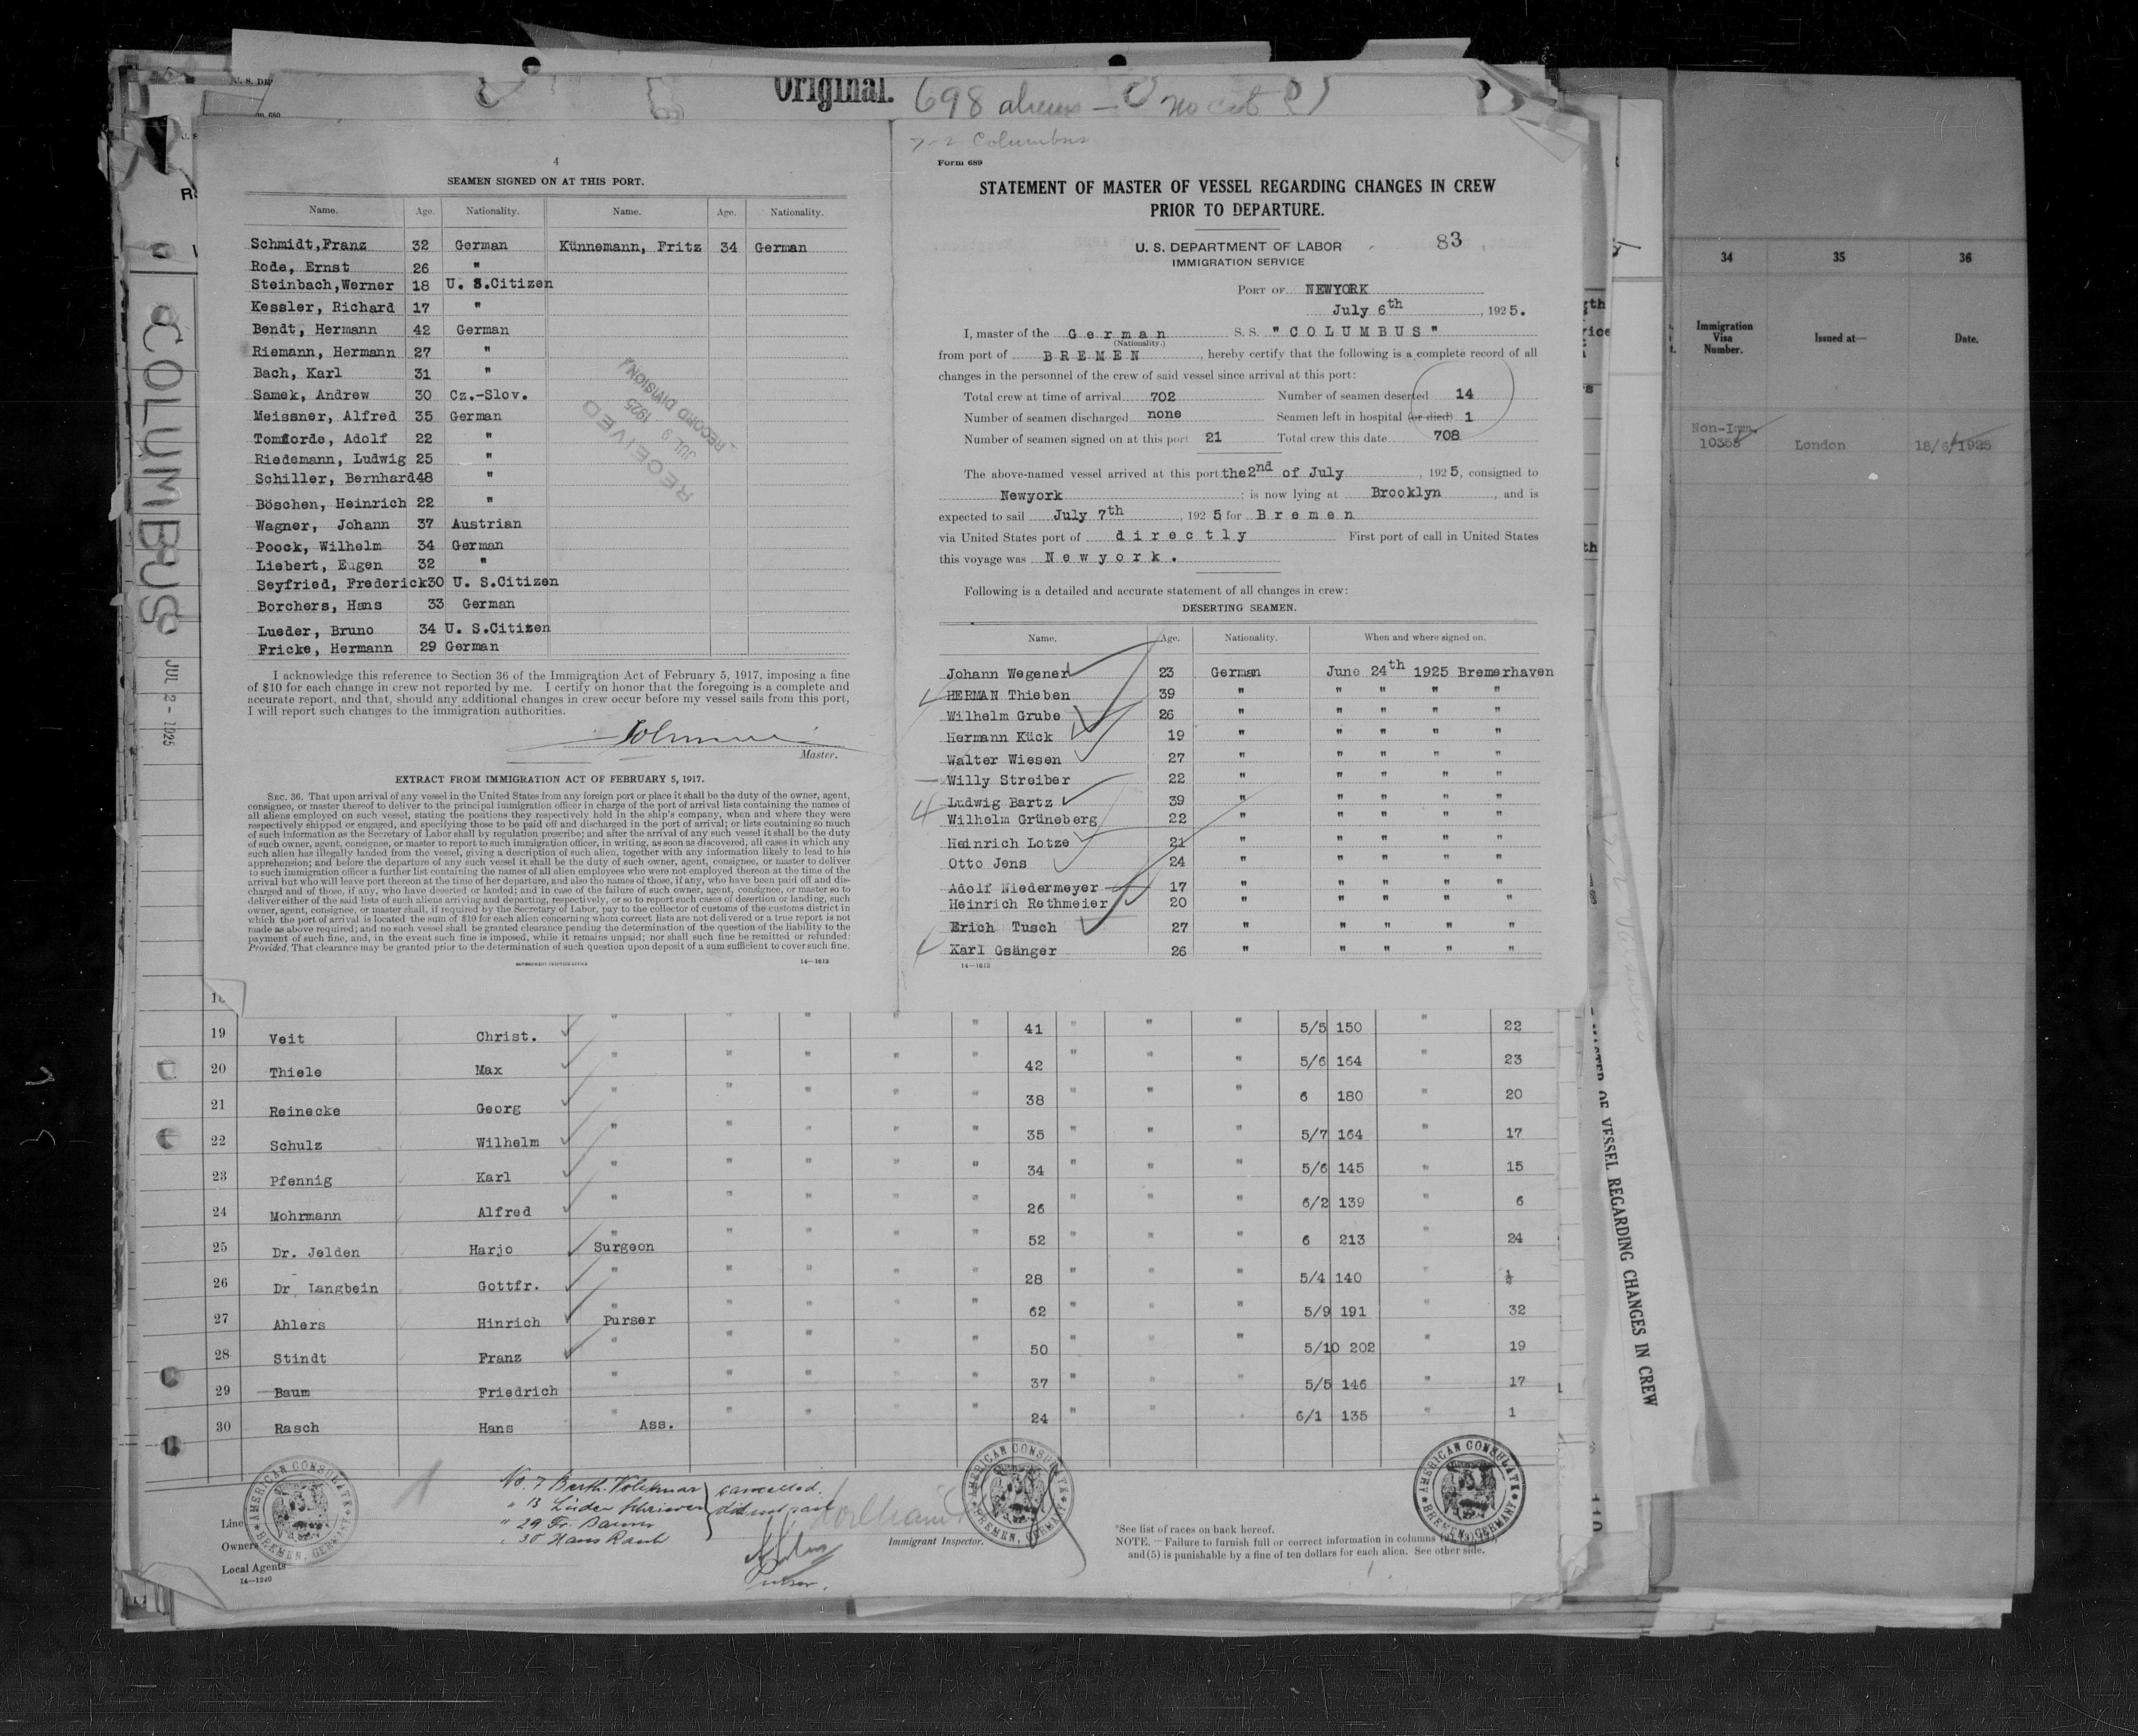 Original. 698 aliens
COLUMBUS
JUL 2 - 1925
4
SEAMEN SIGNED ON AT THIS PORT.
Name. Age. Nationality. Name. Age. Nationality.
Schmidt,Franz 32 German Künnemann, Fritz 34 German
Rode, Ernst 26 "
Steinbach,Werner 18 U. S.Citizen
Kessler, Richard 17 "
Bendt, Hermann 42 German
Riemann, Hermann 27 "
Bach, Karl 31 "
Samek, Andrew 30 Cz.-Slov.
Meissner, Alfred 35 German
Tomforde, Adolf 22 "
Riedemann, Ludwig 25 "
Schiller, Bernhard48 "
Böschen, Heinrich 22 "
Wagner, Johann 37 Austrian
Poock, Wilhelm 34 German
Liebert, Eugen 32 "
Seyfried, Frederick30 U. S.Citizen
Borchers, Hans 33 German
Lueder, Bruno 34 U. S.Citizen
Fricke, Hermann 29 German
RECEIVED
JUL 9 1925
RECORD DIVISION
I acknowledge this reference to Section 36 of the Immigration Act of February 5, 1917, imposing a fine
of $10 for each change in crew not reported by me. I certify on honor that the foregoing is a complete and
accurate report, and that, should any additional changes in crew occur before my vessel sails from this port,
I will report such changes to the immigration authorities.
Master.
EXTRACT FROM IMMIGRATION ACT OF FEBRUARY 5, 1917.
SEC. 36. That upon arrival of any vessel in the United States from any foreign port or place it shall be the duty of the owner, agent,
consignee, or master thereof to deliver to the principal immigration officer in charge of the port of arrival lists containing the names of
all aliens employed on such vessel, stating the positions they respectively hold in the ship's company, when and where they were
respectively shipped or engaged, and specifying those to be paid off and discharged in the port of arrival; or lists containing so much
of such information as the Secretary of Labor shall by regulation prescribe; and after the arrival of any such vessel it shall be the duty
of such owner, agent, consignee, or master to report to such immigration officer, in writing, as soon as discovered, all cases in which any
such alien has illegally landed from the vessel, giving a description of such alien, together with any information likely to lead to his
apprehension; and before the departure of any such vessel it shall be the duty of such owner, agent, consignee, or master to deliver
to such immigration officer a further list containing the names of all alien employees who were not employed thereon at the time of the
arrival but who will leave port thereon at the time of her departure, and also the names of those, if any, who have been paid off and dis-
charged and of those, if any, who have deserted or landed; and in case of the failure of such owner, agent, consignee, or master so to
deliver either of the said lists of such aliens arriving and departing, respectively, or so to report such cases of desertion or landing, such
owner, agent, consignee, or master shall, if required by the Secretary of Labor, pay to the collector of customs of the customs district in
which the port of arrival is located the sum of $10 for each alien concerning whom correct lists are not delivered or a true report is not
made as above required; and no such vessel shall be granted clearance pending the determination of the question of the liability to the
payment of such fine, and, in the event such fine is imposed, while it remains unpaid; nor shall such fine be remitted or refunded:
Provided. That clearance may be granted prior to the determination of such question upon deposit of a sum sufficient to cover such fine.
GOVERNMENT PRINTING OFFICE 14—1613
7-2 Columbus
Form 689
STATEMENT OF MASTER OF VESSEL REGARDING CHANGES IN CREW
PRIOR TO DEPARTURE.
U. S. DEPARTMENT OF LABOR 83
IMMIGRATION SERVICE
PORT OF NEWYORK
July 6th, 1925.
I, master of the German S. S. "COLUMBUS"
(Nationality.)
from port of BREMEN, hereby certify that the following is a complete record of all
changes in the personnel of the crew of said vessel since arrival at this port:
Total crew at time of arrival 702 Number of seamen deserted 14
Number of seamen discharged none Seamen left in hospital (or died) 1
Number of seamen signed on at this port 21 Total crew this date 708
The above-named vessel arrived at this port the 2nd of July, 1925, consigned to
Newyork; is now lying at Brooklyn, and is
expected to sail July 7th, 1925 for Bremen
via United States port of directly First port of call in United States
this voyage was Newyork.
Following is a detailed and accurate statement of all changes in crew:
DESERTING SEAMEN.
Name. Age. Nationality. When and where signed on.
Johann Wegener 23 German June 24th 1925 Bremerhaven
HERMAN Thieben 39 " " " " "
Wilhelm Grube 26 " " " " "
Hermann Kück 19 " " " " "
Walter Wiesen 27 " " " " "
Willy Streiber 22 " " " " "
Ludwig Bartz 39 " " " " "
Wilhelm Grüneberg 22 " " " " "
Heinrich Lotze 21 " " " " "
Otto Jens 24 " " " " "
Adolf Niedermeyer 17 " " " " "
Heinrich Rethmeier 20 " " " " "
Erich Tusch 27 " " " " "
Karl Gsänger 26 " " " " "
14—1613
19 Veit Christ. " " " " " 41 " " " 5/5 150 " 22
20 Thiele Max " " " " " 42 " " " 5/6 164 " 23
21 Reinecke Georg " " " " " 38 " " " 6 180 " 20
22 Schulz Wilhelm " " " " " 35 " " " 5/7 164 " 17
23 Pfennig Karl " " " " " 34 " " " 5/6 145 " 15
24 Mohrmann Alfred " " " " " 26 " " " 6/2 139 " 6
25 Dr. Jelden Harjo Surgeon " " " " 52 " " " 6 213 " 24
26 Dr Langbein Gottfr. " " " " " 28 " " " 5/4 140 "
27 Ahlers Hinrich Purser " " " " 62 " " " 5/9 191 " 32
28 Stindt Franz " " " " " 50 " " " 5/10 202 " 19
29 Baum Friedrich " " " " " 37 " " " 5/5 146 " 17
30 Rasch Hans " Ass. " " " " 24 " " 6/1 135 " 1
No. 7 Barth. Volkmar cancelled.
" 13 Lüder Schriever did not sail
" 29 Fr. Baum
" 30 Hans Rasch
Purser.
AMERICAN CONSULATE
BREMEN, GERMANY
AMERICAN CONSULATE
BREMEN, GERMANY
AMERICAN CONSULATE
BREMEN, GERMANY
Line
Owners
Local Agents
14—1240
Immigrant Inspector.
*See list of races on back hereof.
NOTE.—Failure to furnish full or correct information in columns
and (5) is punishable by a fine of ten dollars for each alien. See other side.
MASTER OF VESSEL REGARDING CHANGES IN CREW
34 35 36
Immigration Visa Number. Issued at— Date.
Non-Imm.
10358 London 18/6/1925